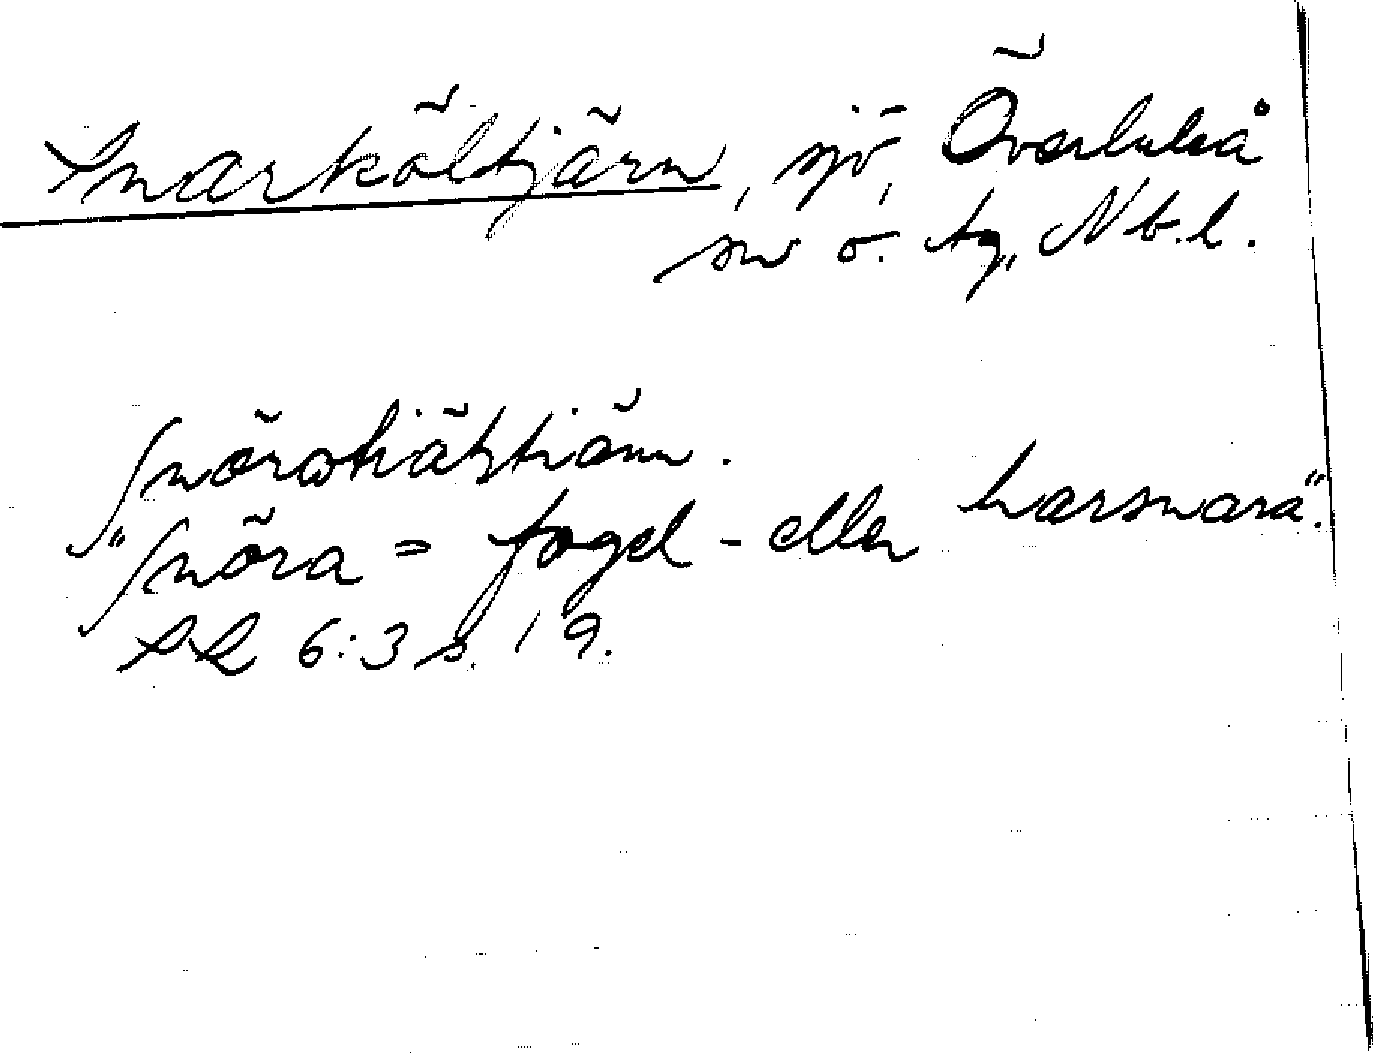 Snarköltjärn, sjö, Överluleå
sn o. tg, Nb.l.
Snörakiältiärn.
"Snöra = fogel- eller harsnara".
SL 6:3 s. 19.